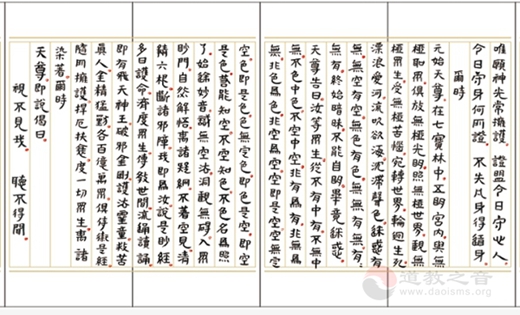 唯願神光常擁護 證盟今日守此人
今日守身何所證 不失凡身得籍身
爾時
元始天尊在七寶林中五明宮內與無
極聖眾俱放無極光明照無極世界觀無
極眾生受無極苦惱宛轉世界輪迴生死
漂浪愛河流吹欲海沉滯聲色迷惑有
無無空有空無色有色無無有無有有
無有終始暗昧不能自明畢竟迷惑
天尊告曰汝等眾生從不有中有不無中
無不色中色不空中空非有為有非無為
無非色為色非空為空空即是空空無定
空色即是色色無定色即色是空即空
是色若能知空不空知色不色名為照
了始達妙音識無空法洞觀無碍入眾
妙門自然解悟離諸疑網不著空見清
靜六根斷諸邪障我即為汝說是妙經
名曰護命濟度眾生傳教世間流通讀誦
即有飛天神王破邪金剛護法靈童救苦
真人金精猛獸各百億萬眾俱侍衛是經
隨所擁護捍厄扶衰度一切眾生離諸
染著爾時
天尊即說偈曰
視不見我 聽不得聞
道教之音
www.daoisms.org